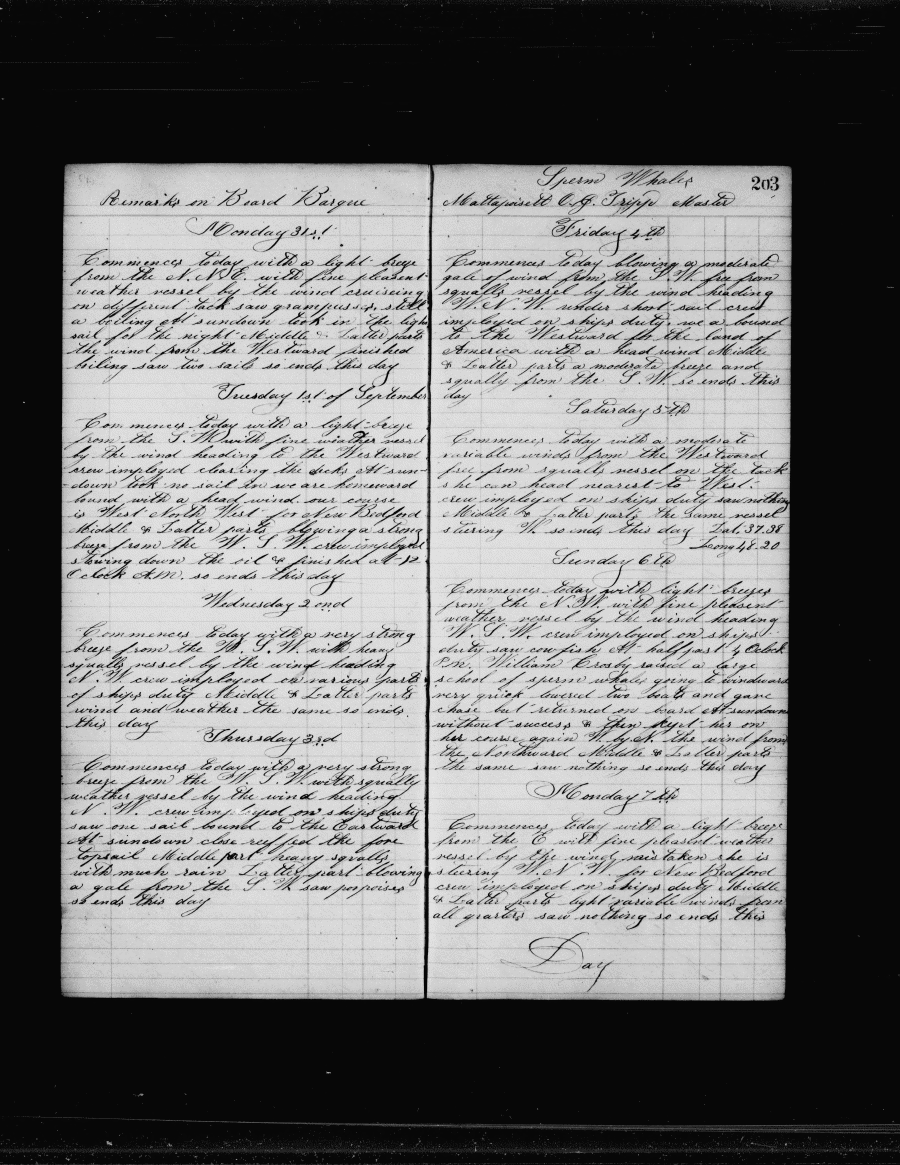 Remarks on Board Barque
Monday 31st
Commences today with a light breeze
from the N. N. E. with fine pleasent
weather vessel by the wind cruiseing
on different tack saw grampusses, still
a boiling At sundown took in the light
sail for the night Middle & Latter parts
the wind from the Westward finished
boiling saw two sails so ends this day
Tuesday 1st of September
Commences today with a light breeze
from the S. W. with fine weather vessel
by the wind heading to the Westward
crew imployed clearing the decks At sun-
down took no sail in we are homeward
bound with a head wind our course
is West North West for New Bedford
Middle & Latter parts blowing a strong
breeze from the W. S. W. crew imployed
stowing down the oil & finished at 12
Oclock A.M. so ends this day
Wednesday 2ond
Commences today with a very strong
breeze from the W. S. W. with heavy
squalls vessel by the wind heading
N. W crew imployed on various parts
of ships duty Middle & Latter parts
wind and weather the same so ends
this day
Thursday 3rd
Commences today with a very strong
breeze from the W. S. W. with squally
weather vessel by the wind heading
N. W. crew imployed on ships duty
saw one sail bound to the Eastward
At sundown close reffed the fore
topsail Middle part heavy squalls
with much rain Latter part blowing
a gale from the S. W saw porpoises
so ends this day
Sperm Whales
203
Mattapoisett O. G. Tripp Master
Friday 4th
Commences today blowing a moderate
gale of wind from the S. W. free from
squalls vessel by the wind heading
W. N. W. under short sail crew
imployed on ships duty. we a bound
to the Westward for the land of
America with a head wind Middle
& Latter parts a moderate breeze and
squally from the S. W. so ends this
day
Saturday 5th
Commences today with a moderate
variable winds from the Westward
free from squalls vessel on the tack
she can head nearest to West.
crew imployed on ships duty saw nothing
Middle & Latter parts the same vessel
stiering W. so ends this day Lat. 37.38
Long 48.20
Sunday 6th
Commences today with light breezes
from the N. W. with fine pleasent
weather vessel by the wind heading
W. S. W. crew imployed on ships
duty saw cowfish At half past 4 Oclock
P.M. William Crosby raised a large
school of sperm whales going to windward
very quick lowered two boats and gave
chase but returned on board At sundown
without success & then kept her on
her course again W. by N. the wind from
the Northward Middle & Latter parts
the same saw nothing so ends this day
Monday 7th
Commences today with a light breeze
from the E. with fine pleasent weather
vessel by the wind mistaken she is
stiering W. N. W. for New Bedford
crew imployed on ships duty Middle
& Latter parts light variable winds from
all quarters saw nothing so ends this
Day